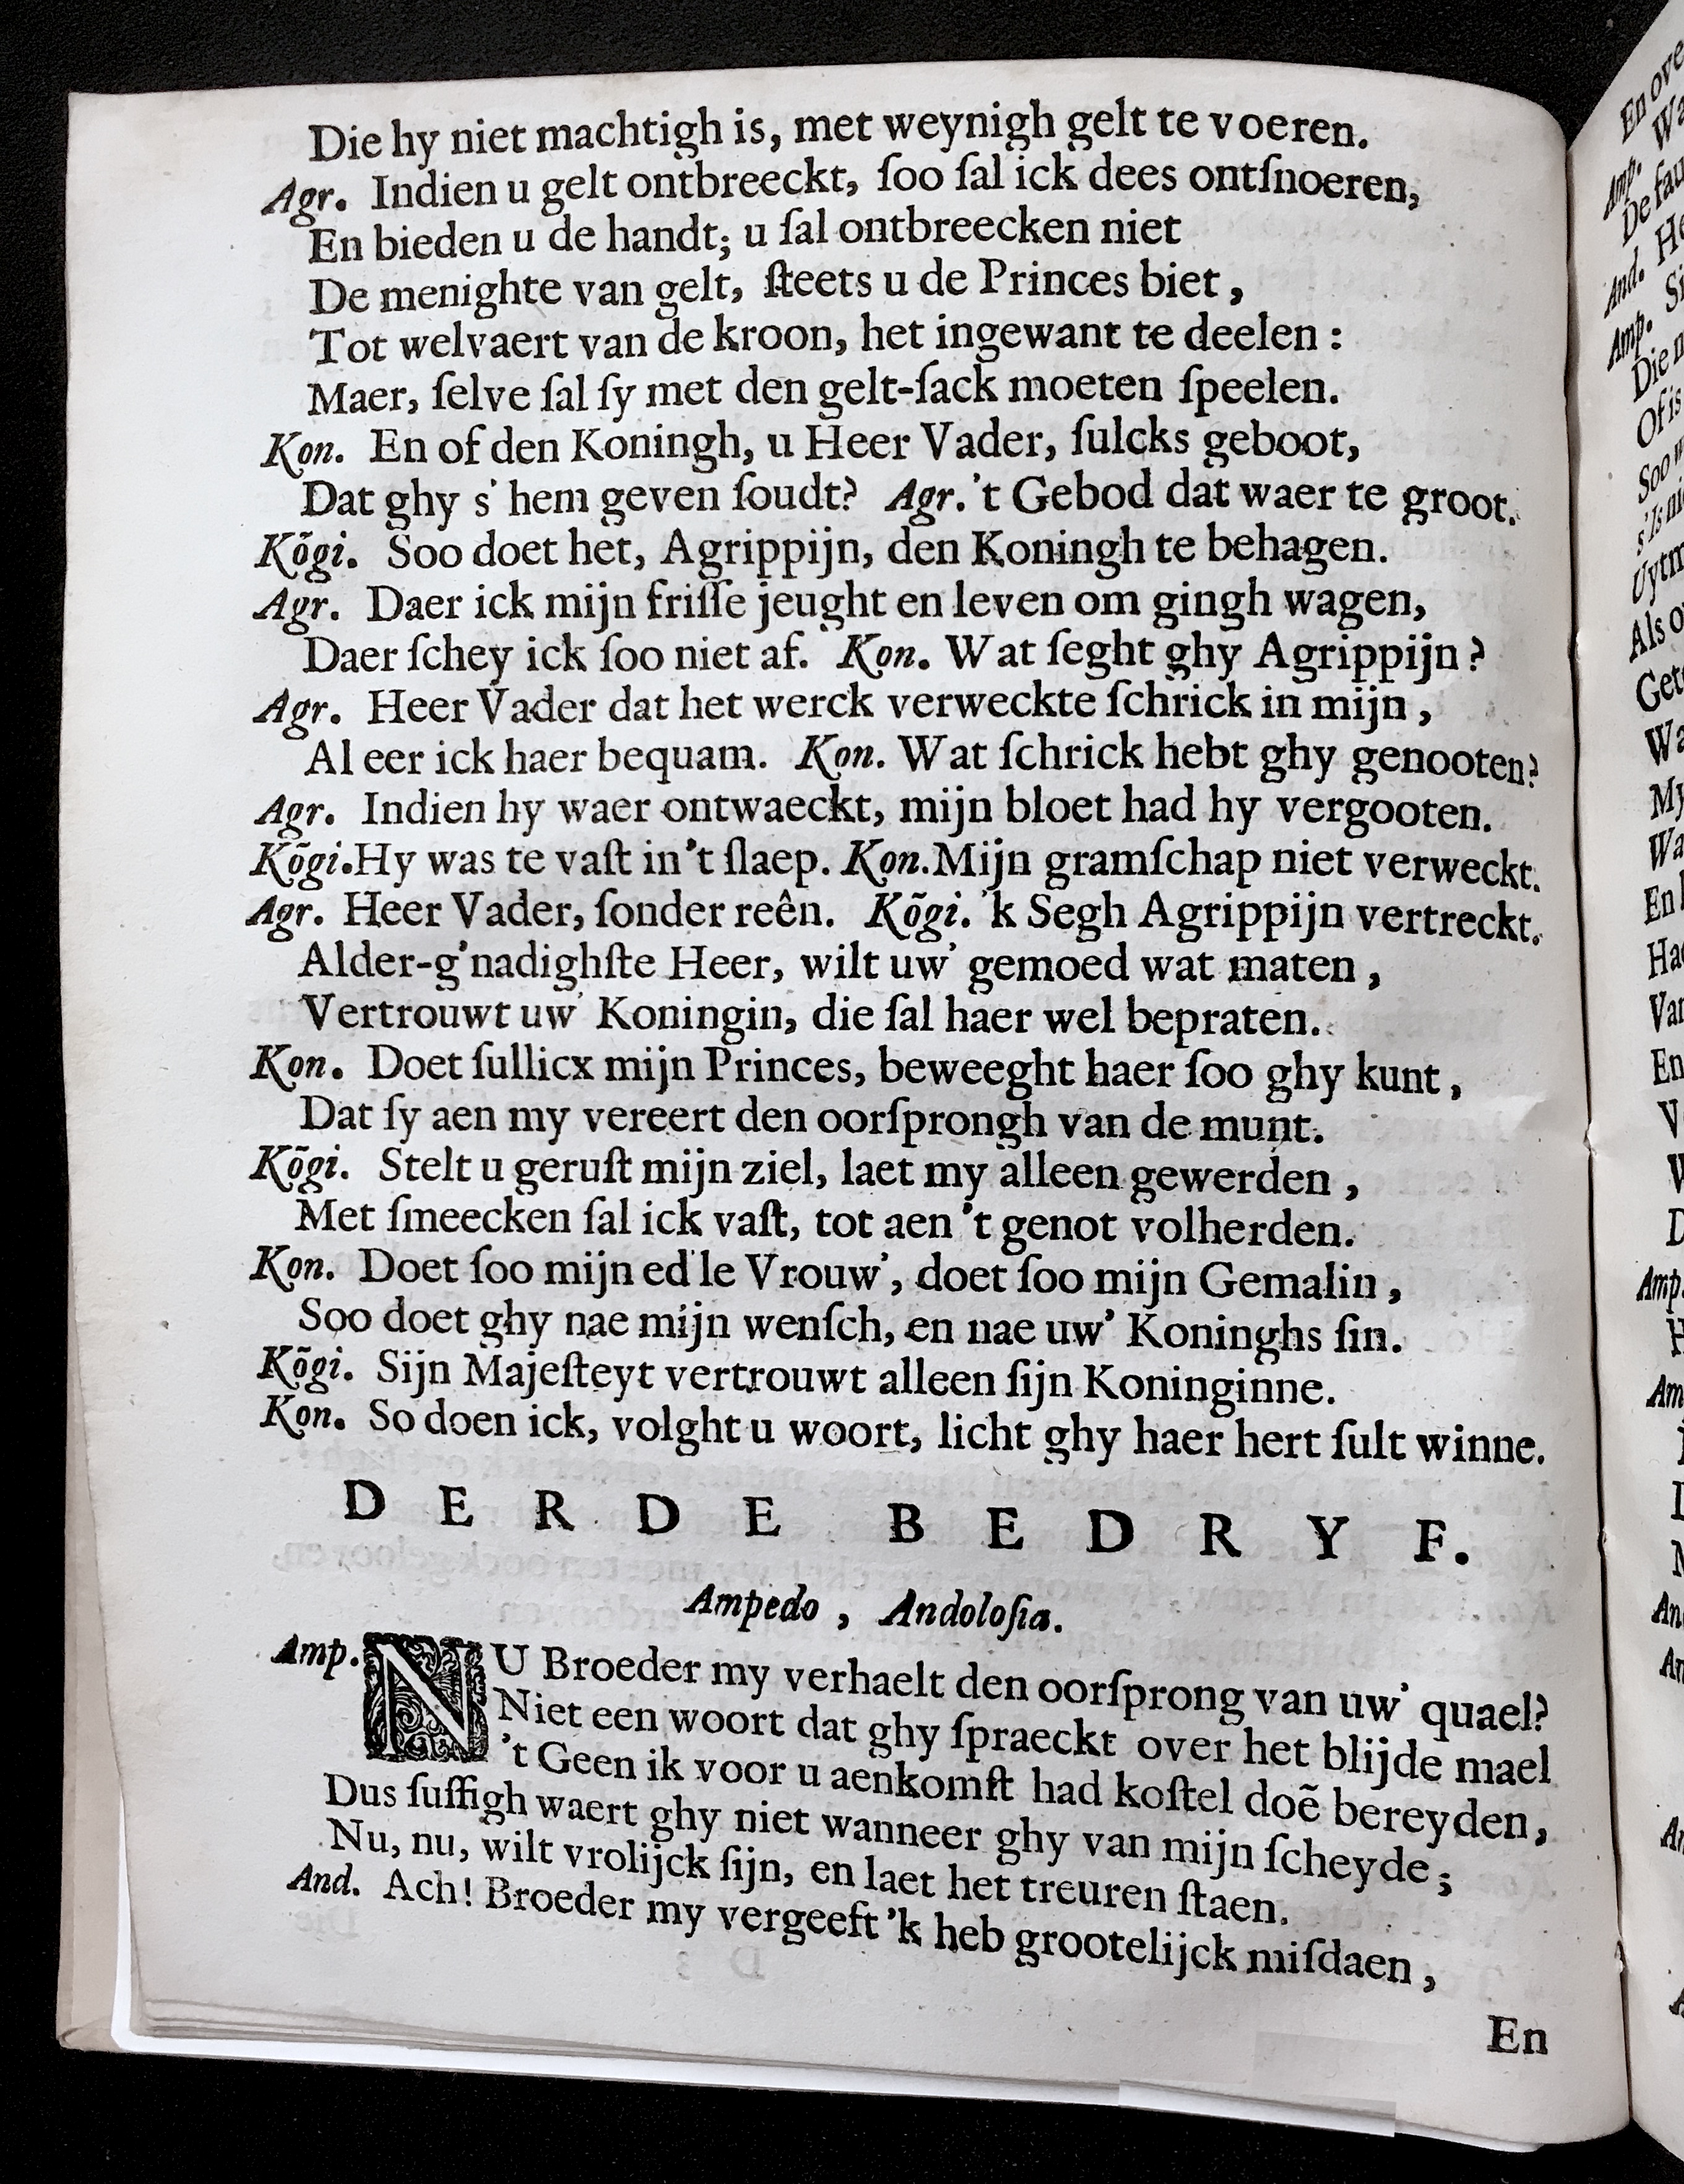 Die hy niet machtigh is, met weynigh gelt te voeren.
Agr. Indien u gelt ontbreeckt, ſoo ſal ick dees ontſnoeren,
En bieden u de handt; u ſal ontbreecken niet
De menighte van gelt, ſteets u de Princes biet,
Tot welvaert van de kroon, het ingewant te deelen:
Maer, ſelve ſal ſy met den gelt-ſack moeten ſpeelen.
Kon. En of den Koningh, u Heer Vader, ſulcks geboot,
Dat ghy s' hem geven ſoudt? Agr. 't Gebod dat waer te groot.
Kõgi. Soo doet het, Agrippijn, den Koningh te behagen.
Agr. Daer ick mijn friſſe jeught en leven om gingh wagen,
Daer ſchey ick ſoo niet af. Kon. Wat ſeght ghy Agrippijn?
Agr. Heer Vader dat het werck verweckte ſchrick in mijn,
Al eer ick haer bequam. Kon. Wat ſchrick hebt ghy genooten?
Agr. Indien hy waer ontwaeckt, mijn bloet had hy vergooten.
Kõgi. Hy was te vaſt in 't ſlaep. Kon. Mijn gramſchap niet verweckt.
Agr. Heer Vader, ſonder reên. Kõgi. 'k Segh Agrippijn vertreckt.
Alder-g'nadighſte Heer, wilt uw' gemoed wat maten,
Vertrouwt uw' Koningin, die ſal haer wel bepraten.
Kon. Doet ſullicx mijn Princes, beweeght haer ſoo ghy kunt,
Dat ſy aen my vereert den oorſprongh van de munt.
Kõgi. Stelt u geruſt mijn ziel, laet my alleen gewerden,
Met ſmeecken ſal ick vaſt, tot aen 't genot volherden.
Kon. Doet ſoo mijn ed'le Vrouw', doet ſoo mijn Gemalin,
Soo doet ghy nae mijn wenſch, en nae uw' Koninghs ſin.
Kõgi. Sijn Majeſteyt vertrouwt alleen ſijn Koninginne.
Kon. So doen ick, volght u woort, licht ghy haer hert ſult winne.
DERDE BEDRYF.
Ampedo, Andoloſia.
Amp. NU Broeder my verhaelt den oorſprong van uw' quael?
Niet een woort dat ghy ſpraeckt over het blijde mael
't Geen ik voor u aenkomſt had koſtel doẽ bereyden,
Dus ſuffigh waert ghy niet wanneer ghy van mijn ſcheyde;
Nu, nu, wilt vrolijck ſijn, en laet het treuren ſtaen.
And. Ach! Broeder my vergeeft 'k heb grootelijck miſdaen,
En